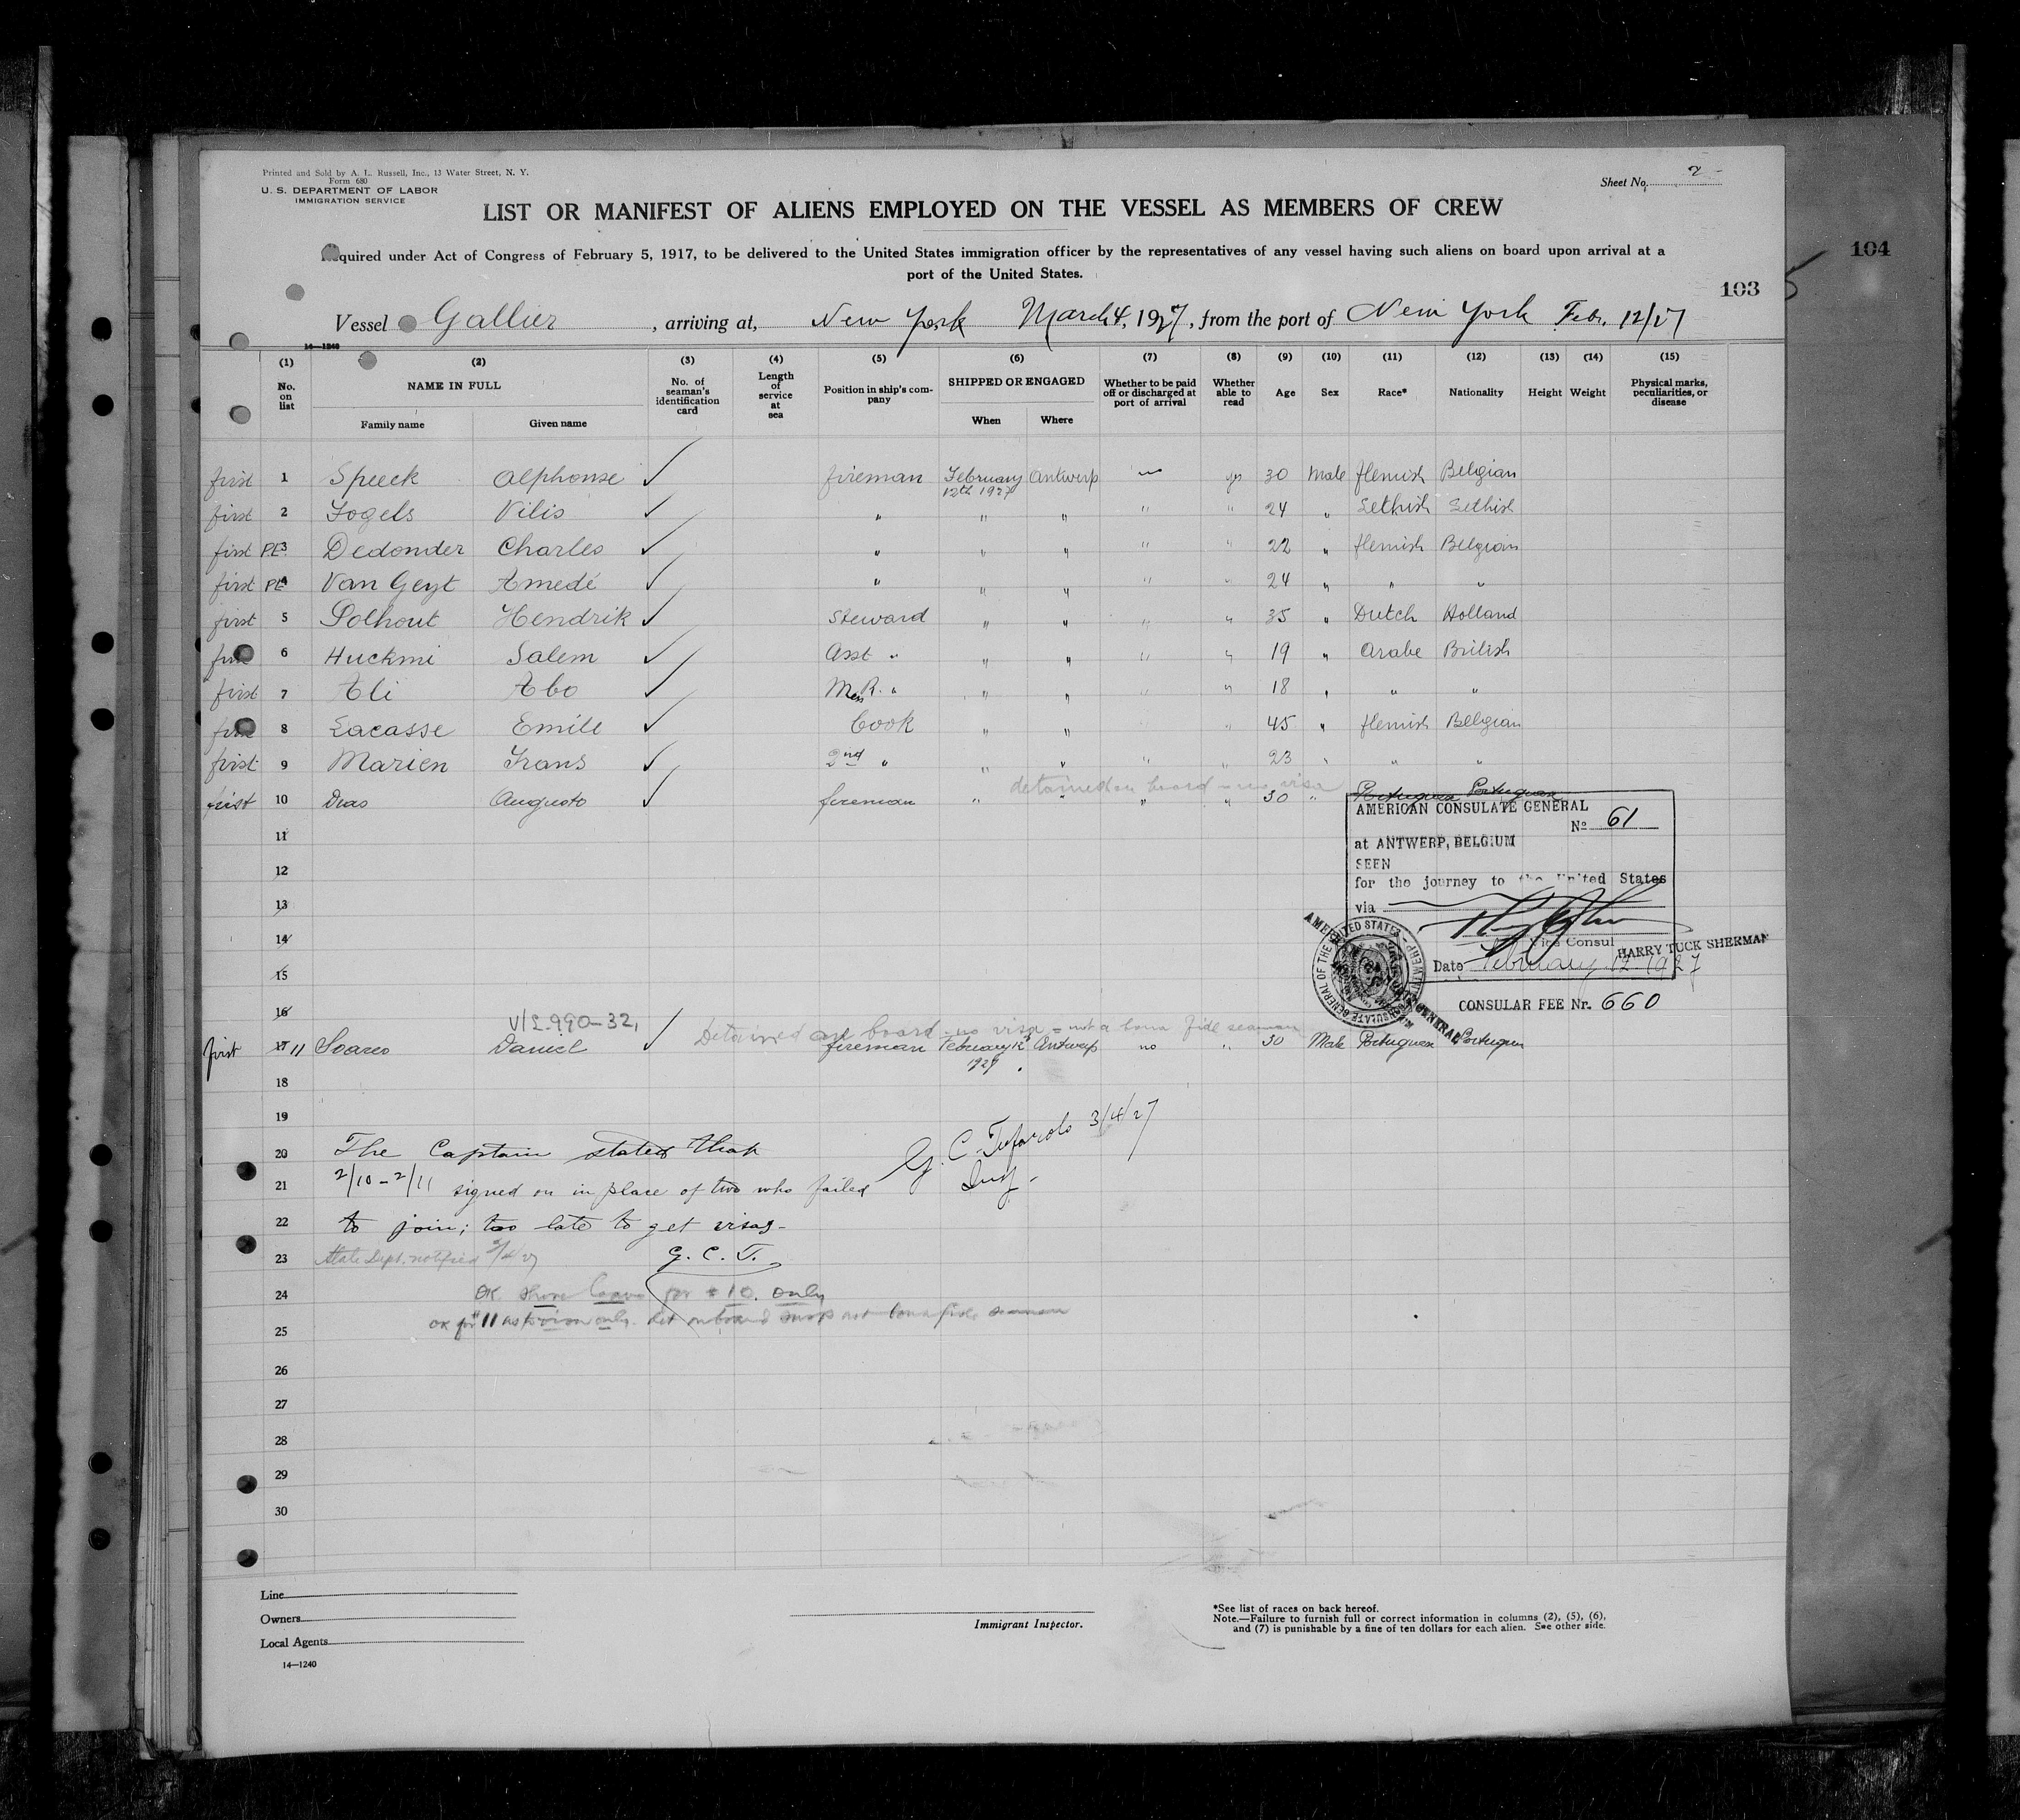 Printed and Sold by A. L. Russell, Inc., 13 Water Street, N. Y.
Form 680
U. S. DEPARTMENT OF LABOR
IMMIGRATION SERVICE
Sheet No. 2
LIST OR MANIFEST OF ALIENS EMPLOYED ON THE VESSEL AS MEMBERS OF CREW
quired under Act of Congress of February 5, 1917, to be delivered to the United States immigration officer by the representatives of any vessel having such aliens on board upon arrival at a
port of the United States.
104
103
Vessel Gallier, arriving at, New York March 4, 1927, from the port of New York Feb. 12/27
14—1240
(1) (2) (3) (4) (5) (6) (7) (8) (9) (10) (11) (12) (13) (14) (15)
No. on list NAME IN FULL Family name Given name No. of seaman's identification card Length of service at sea Position in ship's company SHIPPED OR ENGAGED When Where Whether to be paid off or discharged at port of arrival Whether able to read Age Sex Race* Nationality Height Weight Physical marks, peculiarities, or disease
first 1 Speeck Alphonse ✓ fireman February 12th 1927 Antwerp no yes 30 Male flemish Belgian
first 2 Fogels Vilis ✓ " " " " " 24 " Lethish Lethish
first P.E. 3 Dedonder Charles ✓ " " " " " 22 " flemish Belgian
first PE 4 Van Geyt Amedé ✓ " " " " " 24 " " "
first 5 Polhout Hendrik ✓ Steward " " " " 35 " Dutch Holland
first 6 Huckmi Salem ✓ Asst " " " " " 19 " Arabe British
first 7 Ali Abo ✓ Mess R. " " " " " 18 " " "
first 8 Lacasse Emile ✓ Cook " " " 45 " flemish Belgian
first 9 Marien Frans ✓ 2nd " " " " " 23 " " "
detained on board - no visa
first 10 Dias Augusto ✓ fireman " " " " 30 " Portuguese Portuguese
AMERICAN CONSULATE GENERAL
No 61
at ANTWERP, BELGIUM
SEEN
for the journey to the United States
via
Vice Consul
HARRY TUCK SHERMAN
Date February 12 1927
CONSULAR FEE Nr. 660
11
12
13
14
15
16
V/L 990-32, Detained on board - no visa - not a bona fide seaman
first 17 11 Soares Daniel ✓ fireman February 12 1927 Antwerp no " 30 Male Portuguese Portuguese
18
19
20 The Captain states that
G. C. 3/4/27
21 2/10 - 2/11 signed on in place of two who failed
Insp.
22 to join; too late to get visas -
23 State Dept. notified G. C. T.
24 OK shore leave for # 10. only
25 OK for # 11 as to visa only. not bona fide seaman
26
27
28
29
30
Line
Owners
Local Agents
14—1240
Immigrant Inspector.
*See list of races on back hereof.
Note.—Failure to furnish full or correct information in columns (2), (5), (6),
and (7) is punishable by a fine of ten dollars for each alien. See other side.